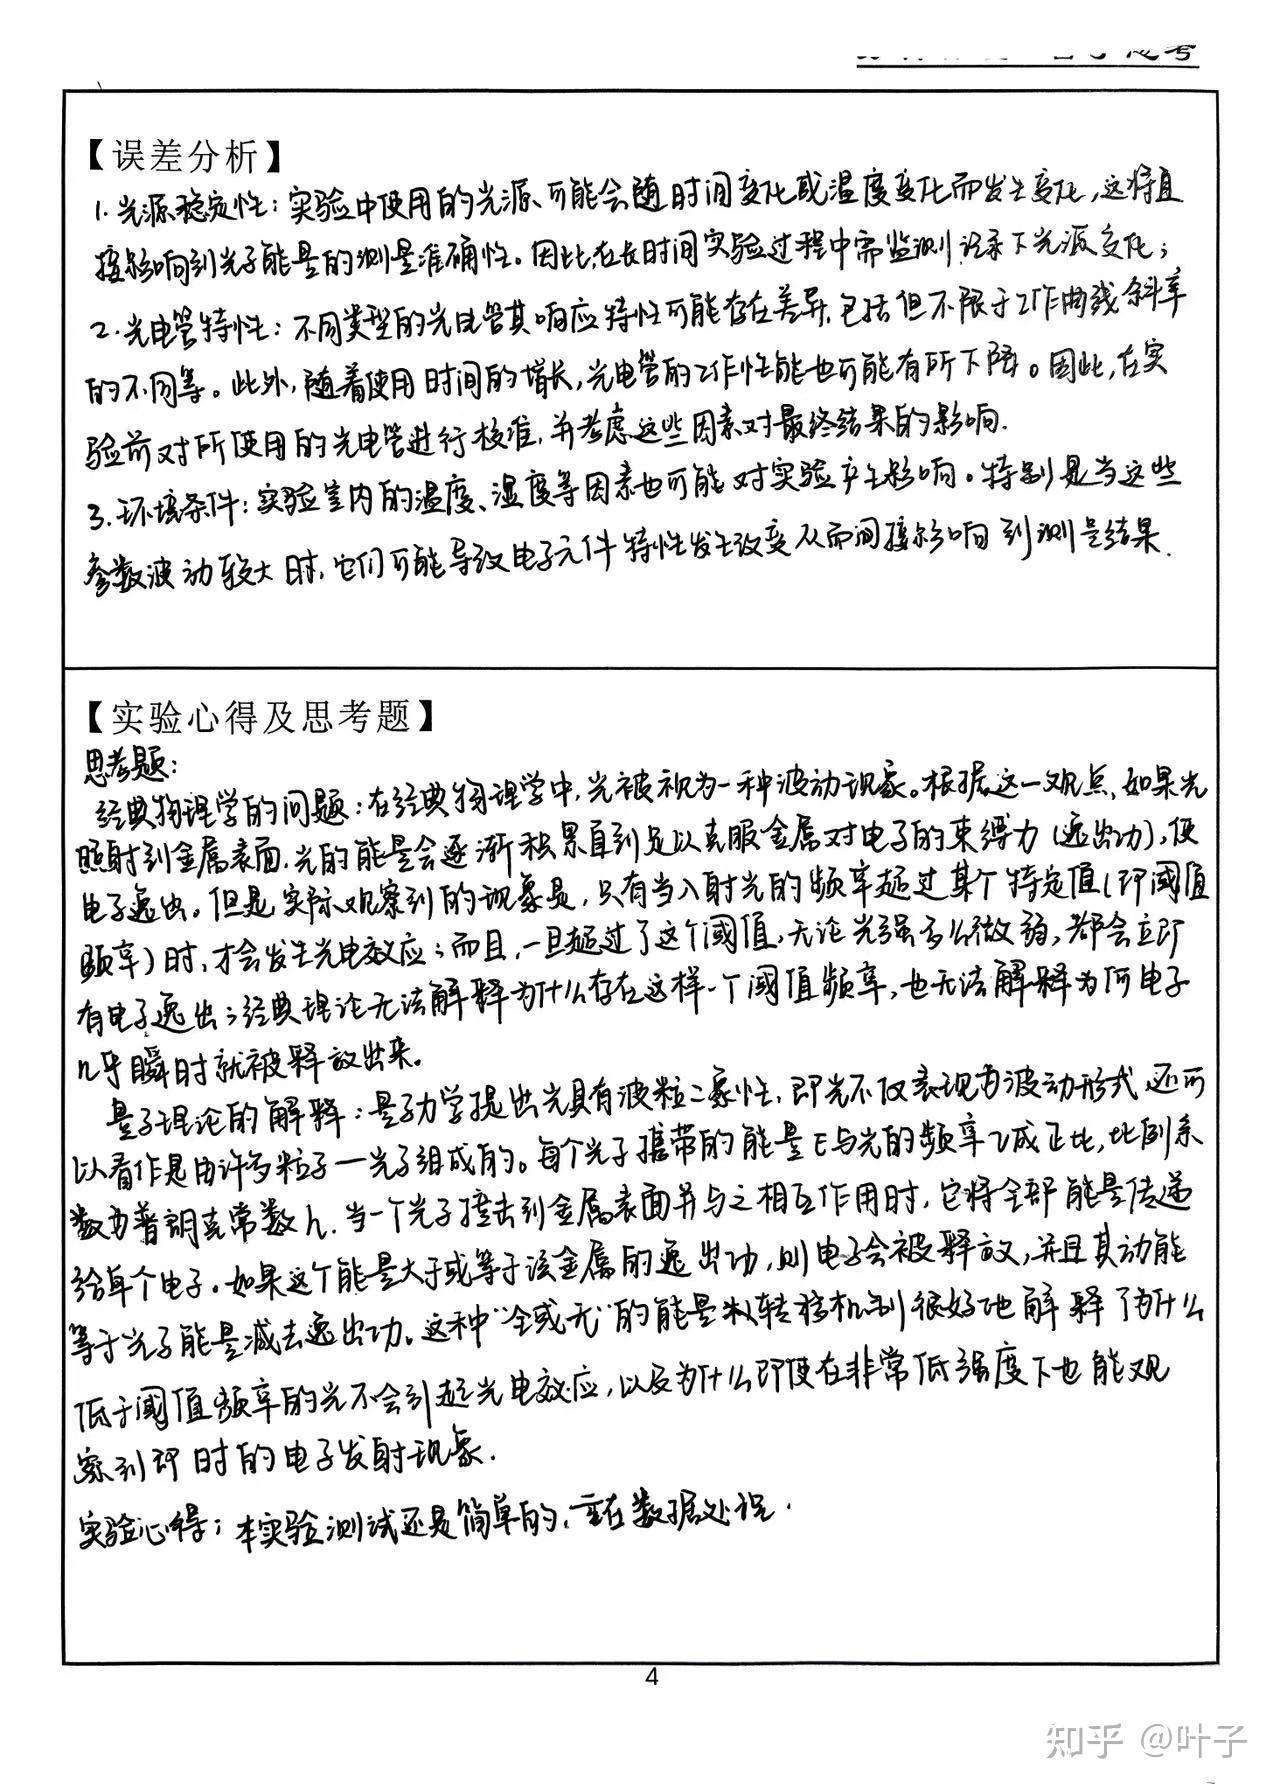 思考
【误差分析】
1.光源稳定性：实验中使用的光源、可能会随时间变化或温度变化而发生变化，这将直
接影响到光子能量的测量准确性。因此，在长时间实验过程中需监测记录下光源变化；
2.光电管特性：不同类型的光电管其响应特性可能存在差异，包括但不限于工作曲线斜率
的不同等。此外，随着使用时间的增长，光电管的工作性能也可能有所下降。因此，在实
验前对所使用的光电管进行校准，并考虑这些因素对最终结果的影响.
3.环境条件：实验室内的温度、湿度等因素也可能对实验产生影响。特别是当这些
参数波动较大时，它们可能导致电子元件特性发生改变从而间接影响到测量结果.
【实验心得及思考题】
思考题：
经典物理学的问题：在经典物理学中，光被视为一种波动现象。根据这一观点，如果光
照射到金属表面，光的能量会逐渐积累直到足以克服金属对电子的束缚力（逸出功），使
电子逸出。但是实际观察到的现象是，只有当入射光的频率超过某个特定值（即阈值
频率）时，才会发生光电效应；而且，一旦超过了这个阈值，无论光强多么微弱，都会立即
有电子逸出；经典理论无法解释为什么存在这样一个阈值频率，也无法解释为何电子
几乎瞬时就被释放出来。
量子理论的解释：量子力学提出光具有波粒二象性，即光不仅表现为波动形式，还可
以看作是由许多粒子—光子组成的。每个光子携带的能量E与光的频率ν成正比，比例系
数为普朗克常数h.当一个光子撞击到金属表面并与之相互作用时，它将全部能量传递
给单个电子。如果这个能量大于或等于该金属的逸出功，则电子会被释放，并且其动能
等于光子能量减去逸出功。这种“全或无”的能量转移机制很好地解释了为什么
低于阈值频率的光不会引起光电效应，以及为什么即使在非常低强度下也能观
察到即时的电子发射现象.
实验心得：本实验测试还是简单的，在数据处
4
知乎 @叶子